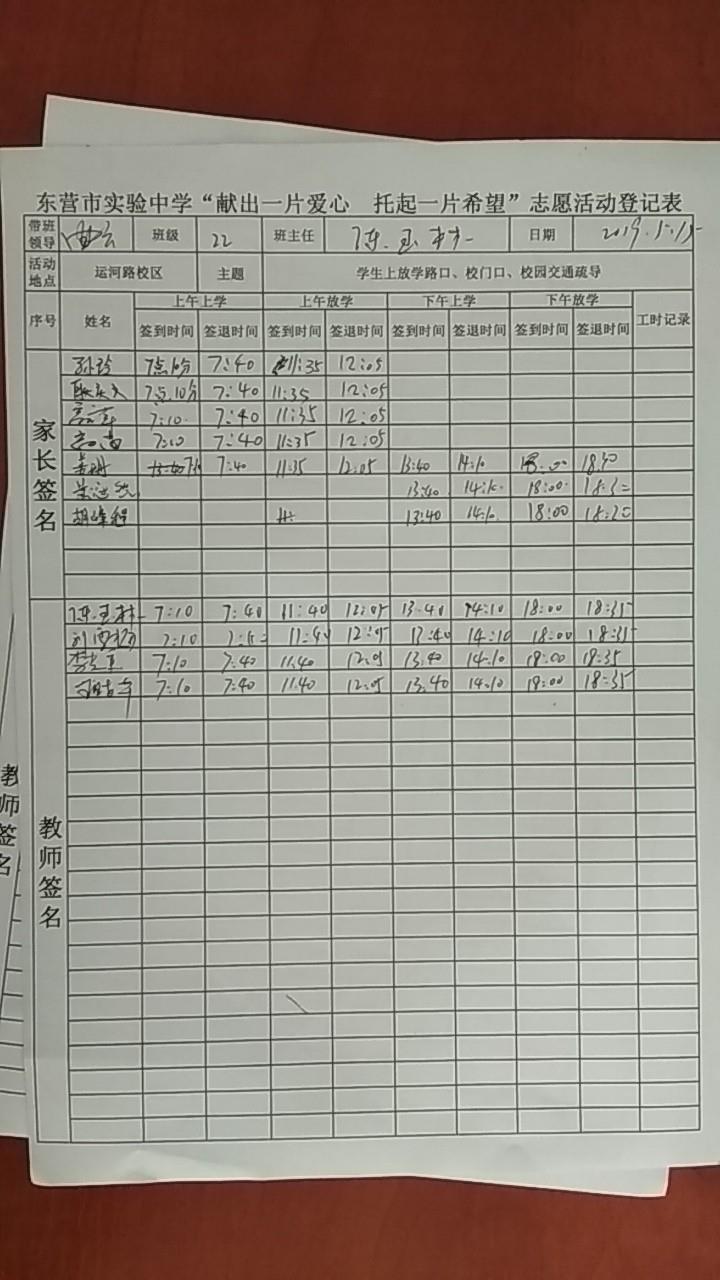 东营市实验中学“献出一片爱心 托起一片希望”志愿活动登记表
带班领导 班级 22 班主任 陈玉林 日期 2019.
活动地点 运河路校区 主题 学生上放学路口、校门口、校园交通疏导
序号 姓名 上午上学 上午放学 下午上学 下午放学 工时记录
签到时间 签退时间 签到时间 签退时间 签到时间 签退时间 签到时间 签退时间
家长签名
孙玲 7点10分 7:40 11:35 12:05
7点10分 7:40 11:35 12:05
7:10 7:40 11:35 12:05
7:10 7:40 11:35 12:05
7:40 11:35 12:05 13:40 14:10 18:30
13:40 18:00
胡峰程 13:40 14:10 18:00
教师签名
陈玉林 7:10 7:40 11:40 12:05 13:40 14:10 18:00 18:35
7:10 11:40 12:05 13:40 14:10 18:00 18:35
7:10 7:40 11:40 12:05 13:40 14:10 18:00 18:35
7:10 7:40 11:40 12:05 13:40 14:10 18:00 18:35
教师签名